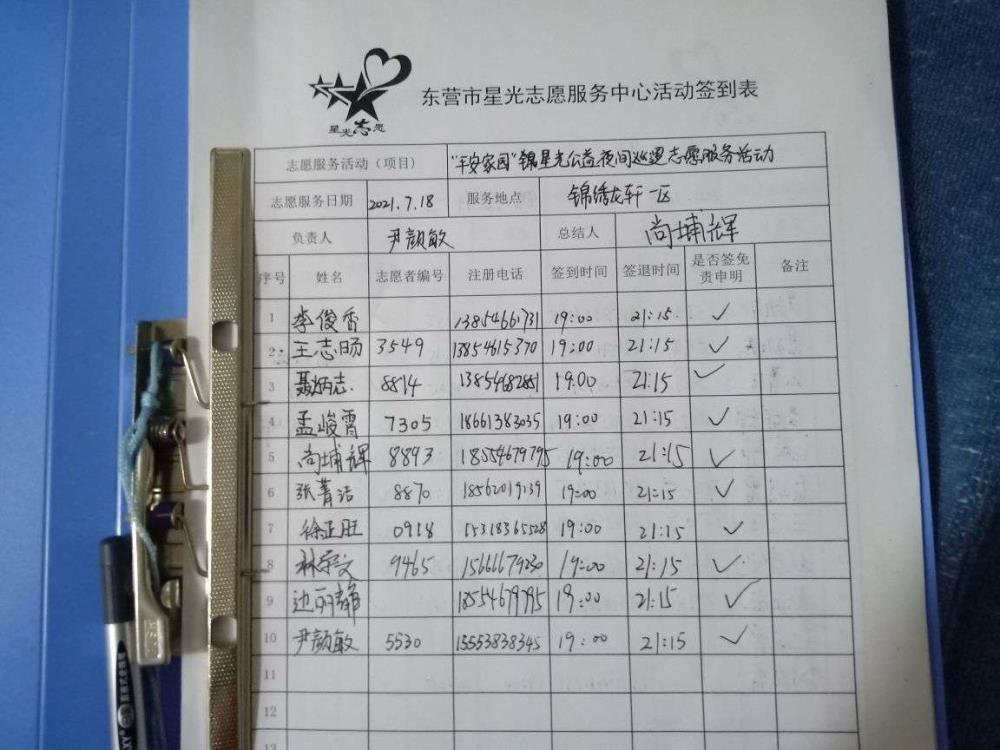 星光志愿
东营市星光志愿服务中心活动签到表
志愿服务活动（项目） "平安家园"锦星光公益夜间巡逻志愿服务活动
志愿服务日期 2021.7.18 服务地点 锦绣龙轩一区
负责人 尹颜敏 总结人 尚埔辉
序号 姓名 志愿者编号 注册电话 签到时间 签退时间 是否签免责申明 备注
1 李俊香 13854661731 19:00 21:15 ✓
2 王志旸 3549 13854615370 19:00 21:15 ✓
3 聂炳志 8814 13854682881 19:00 21:15 ✓
4 孟峻霄 7305 18661383035 19:00 21:15 ✓
5 尚埔辉 8893 18554679795 19:00 21:15 ✓
6 张菁洁 8870 18562019139 19:00 21:15 ✓
7 徐正旺 0918 15318365528 19:00 21:15 ✓
8 文 9465 15666679230 19:00 21:15 ✓
9 边丽静 18554679795 19:00 21:15 ✓
10 尹颜敏 5530 15553838345 19:00 21:15 ✓
11
12
13